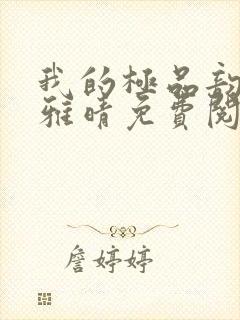 我的極品
雅晴免費閱
詹婷婷